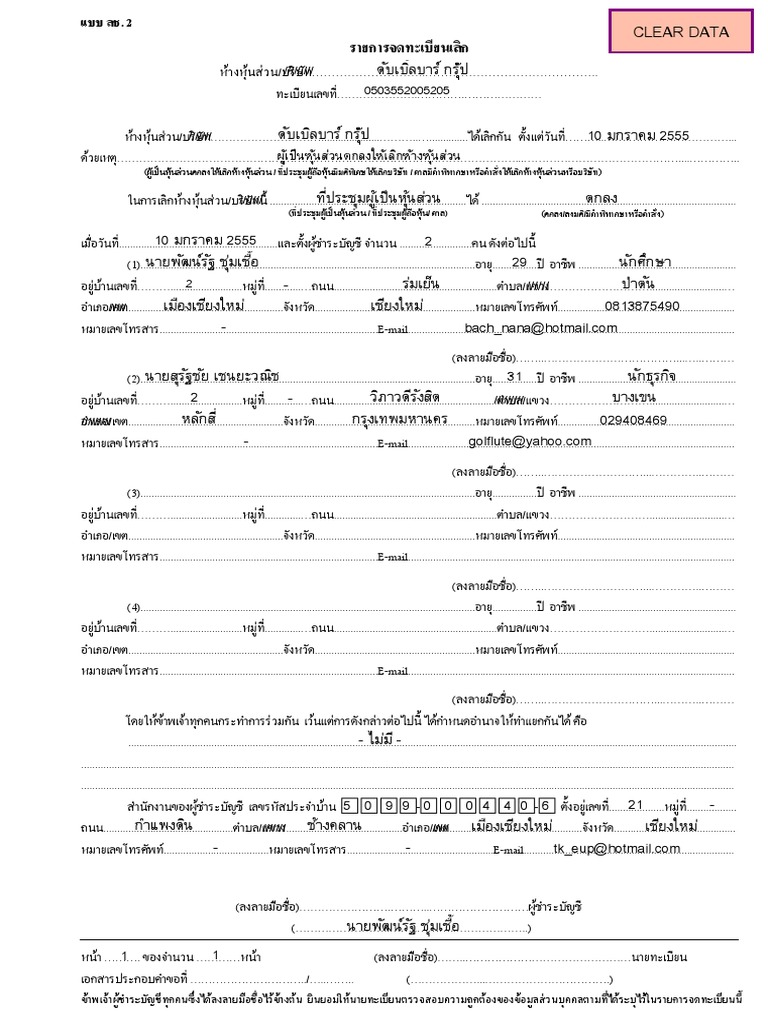 แบบ ลช. 2
CLEAR DATA
รายการจดทะเบียนเลิก
ห้างหุ้นส่วน/บริษัท ดับเบิลบาร์ กรุ๊ป
ทะเบียนเลขที่ 0503552005205
ห้างหุ้นส่วน/บริษัท ดับเบิลบาร์ กรุ๊ป ได้เลิกกัน ตั้งแต่วันที่ 10 มกราคม 2555
ด้วยเหตุ ผู้เป็นหุ้นส่วนตกลงให้เลิกห้างหุ้นส่วน
(ผู้เป็นหุ้นส่วนตกลงให้เลิกห้างหุ้นส่วน / ที่ประชุมผู้ถือหุ้นมีมติพิเศษให้เลิกบริษัท / ศาลมีคำพิพากษาหรือคำสั่งให้เลิกห้างหุ้นส่วนหรือบริษัท)
ในการเลิกห้างหุ้นส่วน/บริษัทนี้ ที่ประชุมผู้เป็นหุ้นส่วน ได้ ตกลง
(ที่ประชุมผู้เป็นหุ้นส่วน / ที่ประชุมผู้ถือหุ้น/ ศาล) (ตกลง/ลงมติ/มีคำพิพากษาหรือคำสั่ง)
เมื่อวันที่ 10 มกราคม 2555 และตั้งผู้ชำระบัญชี จำนวน 2 คน ดังต่อไปนี้
(1) นายพัฒน์รัฐ ชุ่มเชื้อ อายุ 29 ปี อาชีพ นักศึกษา
อยู่บ้านเลขที่ 2 หมู่ที่ - ถนน ร่มเย็น ตำบล/แขวง ป่าตัน
อำเภอ/เขต เมืองเชียงใหม่ จังหวัด เชียงใหม่ หมายเลขโทรศัพท์ 0813875490
หมายเลขโทรสาร - E-mail bach_nana@hotmail.com
(ลงลายมือชื่อ)
(2) นายสุรัฐชัย เชนยะวณิช อายุ 31 ปี อาชีพ นักธุรกิจ
อยู่บ้านเลขที่ 2 หมู่ที่ - ถนน วิภาวดีรังสิต ตำบล/แขวง บางเขน
อำเภอ/เขต หลักสี่ จังหวัด กรุงเทพมหานคร หมายเลขโทรศัพท์ 029408469
หมายเลขโทรสาร - E-mail golflute@yahoo.com
(ลงลายมือชื่อ)
(3) อายุ ปี อาชีพ
อยู่บ้านเลขที่ หมู่ที่ ถนน ตำบล/แขวง
อำเภอ/เขต จังหวัด หมายเลขโทรศัพท์
หมายเลขโทรสาร E-mail
(ลงลายมือชื่อ)
(4) อายุ ปี อาชีพ
อยู่บ้านเลขที่ หมู่ที่ ถนน ตำบล/แขวง
อำเภอ/เขต จังหวัด หมายเลขโทรศัพท์
หมายเลขโทรสาร E-mail
(ลงลายมือชื่อ)
โดยให้ข้าพเจ้าทุกคนกระทำการร่วมกัน เว้นแต่การดังกล่าวต่อไปนี้ ได้กำหนดอำนาจให้ทำแยกกันได้ คือ
- ไม่มี -
สำนักงานของผู้ชำระบัญชี เลขรหัสประจำบ้าน 5099-000440-6 ตั้งอยู่เลขที่ 21 หมู่ที่ -
ถนน กำแพงดิน ตำบล/แขวง ช้างคลาน อำเภอ/เขต เมืองเชียงใหม่ จังหวัด เชียงใหม่
หมายเลขโทรศัพท์ - หมายเลขโทรสาร - E-mail tk_eup@hotmail.com
(ลงลายมือชื่อ) ผู้ชำระบัญชี
( นายพัฒน์รัฐ ชุ่มเชื้อ )
หน้า 1 ของจำนวน 1 หน้า (ลงลายมือชื่อ) นายทะเบียน
เอกสารประกอบคำขอที่ / ( )
ข้าพเจ้าผู้ชำระบัญชีทุกคนซึ่งได้ลงลายมือชื่อไว้ข้างต้น ยินยอมให้นายทะเบียนตรวจสอบความถูกต้องของข้อมูลส่วนบุคคลตามที่ได้ระบุไว้ในรายการจดทะเบียนนี้